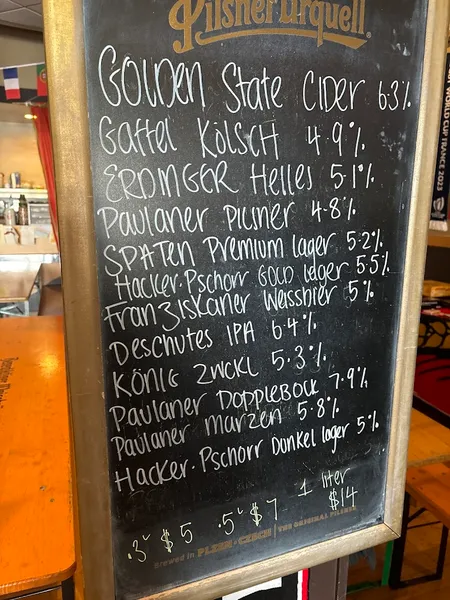 Pilsner Urquell
GOlDEN State CIDER 6.3%
Gaffel KölSCH 4.9%
ERDINGER Helles 5.1%
Paulaner Pilsner 4.8%
SPATEN Premium lager 5.2%
Hacker-Pschorr GOLD lager 5.5%
Franziskaner Weissbier 5%
DESCHUTES IPA 6.4%
KÖNIG ZWCKL 5.3%
Paulaner Dopplebock 7.9%
Paulaner MarZEN 5.8%
Hacker-Pschorr Dunkel lager 5%
.3L $5 .5L $7 1 liter $14
Brewed in PLZEN • CZECH | THE ORIGINAL PILSNER
WORLD CUP FRANCE 2023